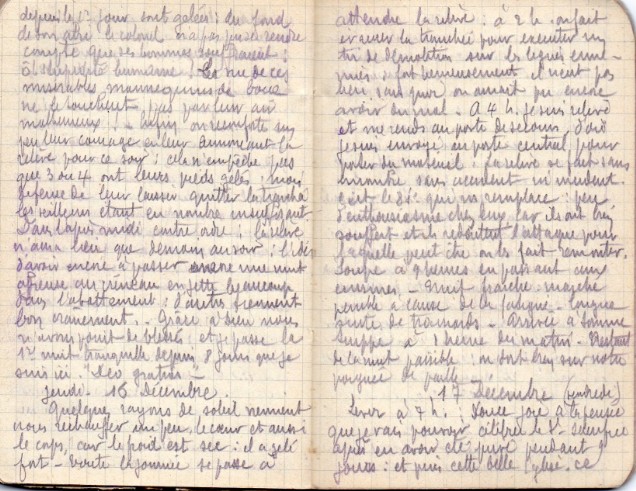 depuis le 1er jour sont gelés : du fond
de son abri le colonel n'a pas pu se rendre
compte que ses hommes souffraient :
ô stupidité humaine ! La vue de ces
misérables mannequins de boue
ne le touchent pas par leur air
malheureux ! Enfin on remonte un
peu leur courage en leur annonçant la
relève pour ce soir : cela n'empêche pas
que 3 ou 4 ont leurs pieds gelés : mais
défense de leur laisser quitter la tranchée
les veilleurs étant en nombre insuffisant
Dans l'après midi contre ordre : la relève
n'aura lieu que demain au soir : l'idée
d'avoir encore à passer une nuit
affreuse au créneau en jette beaucoup
dans l'abattement : d'autres prennent
bon crânement. Grâce à Dieu nous
n'avons point de blessés et je passe la
1re nuit tranquille depuis 8 jours que je
suis ici. Deo gratias
Jeudi 16 Décembre.
Quelques rayons de soleil viennent
nous réchauffer un peu le cœur et aussi
le corps, car le froid est sec : il a gelé
fort - Toute la journée se passe à
attendre la relève : à 2 h. on fait
évacuer la tranchée pour exécuter un
tir de démolition sur les lignes enne-
mies : fort heureusement il n'eut pas
lieu sans quoi on aurait pu encore
avoir du mal. A 4 h. je suis relevé
et me rends au poste de secours, d'où
je suis envoyé au poste central pour
porter du matériel : la relève se fait sans
encombre sans accident ni incident.
c'est le qui nous remplace : peu
d'enthousiasme chez eux car ils ont bien
souffert et ils redoutent l'attaque pour
laquelle peut être on les fait remonter.
Soupe à 9 heures en passant aux
cuisines - nuit fraîche : marche
pénible à cause de la fatigue - longue
route de - Arrivée à Somme
Suippe à 1 heure du matin - Restant
de la nuit paisible : on dort bien sur notre
poignée de paille -
17 Décembre (vendredi)
Lever à 7 h. : Douce joie à la pensée
que je vais pouvoir célébrer le St Sacrifice
après en avoir été privé pendant 9
jours : et puis cette belle église, ce